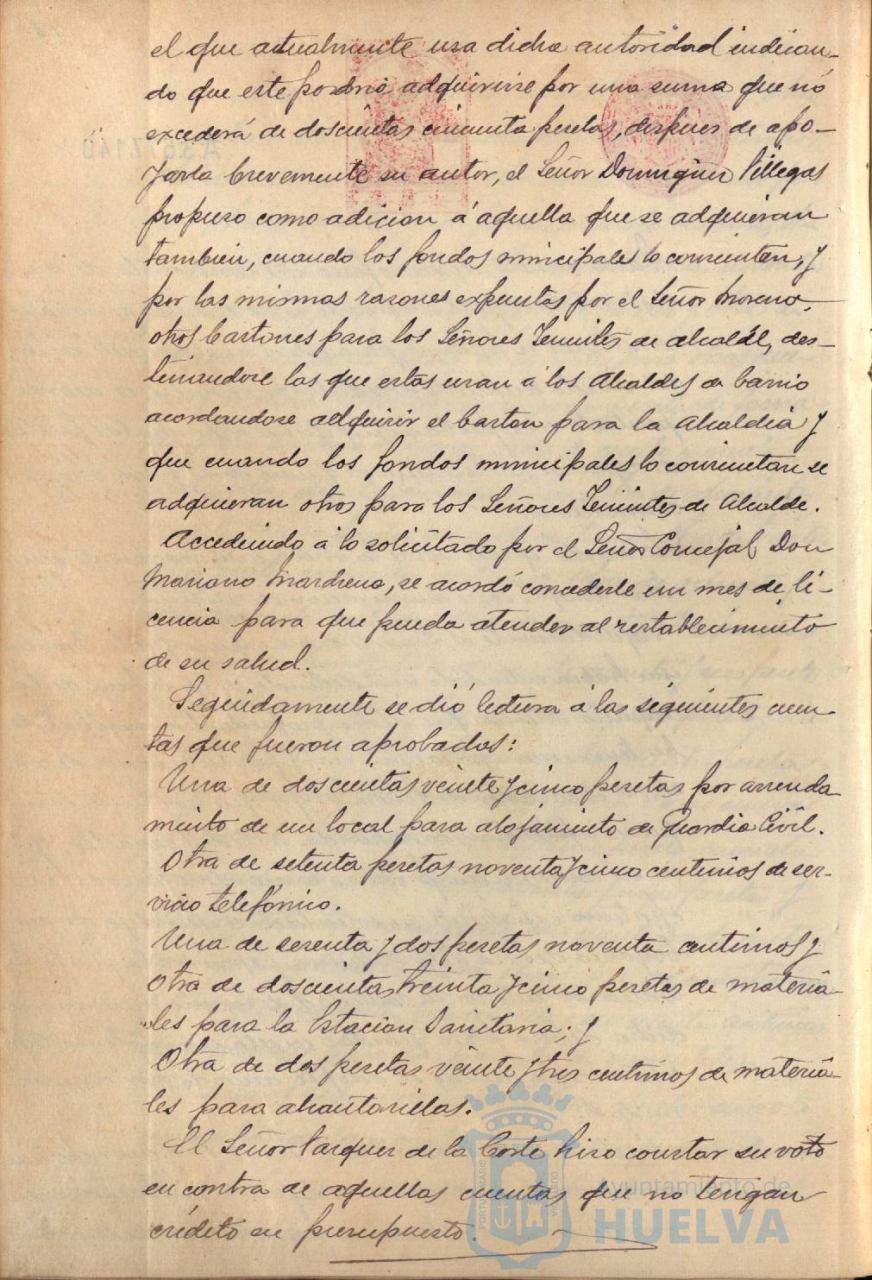 el que actualmente usa dicha autoridad indican-
do que este podria adquirirse por una suma que no
excederá de doscientas cincuenta pesetas, despues de apo-
yarla brevemente su autor, el Señor Dominguez Villegas
propuso como adicion á aquella que se adquieran
tambien, cuando los fondos municipales lo consientan, y
por las mismas razones expuestas por el Señor Moreno,
otros bastones para los Señores Tenientes de Alcalde, des-
tinandose las que estas usan á los Alcaldes de barrio
acordandose adquirir el baston para la Alcaldia y
que cuando los fondos municipales lo consientan se
adquieran otros para los Señores Tenientes de Alcalde.
Accediendo á lo solicitado por el Señor Concejal Don
Mariano Marchena, se acordó concederle un mes de li-
cencia para que pueda atender al restablecimiento
de su salud.
Seguidamente se dió lectura á las siguientes cuen-
tas que fueron aprobadas:
Una de doscientas veinte y cinco pesetas por arrenda-
miento de un local para alojamiento de Guardia Civil.
Otra de setenta pesetas noventa y cinco centimos de ser-
vicio telefónico.
Una de sesenta y dos pesetas noventa centimos y
Otra de doscientas treinta y cinco pesetas de materia-
les para la Estacion Sanitaria; y
Otra de dos pesetas veinte y tres centimos de materia-
les para alcantarillas.
El Señor Vazquez de la Corte hizo constar su voto
en contra de aquellas cuentas que no tengan
crédito en presupuesto.
Ayuntamiento de
HUELVA